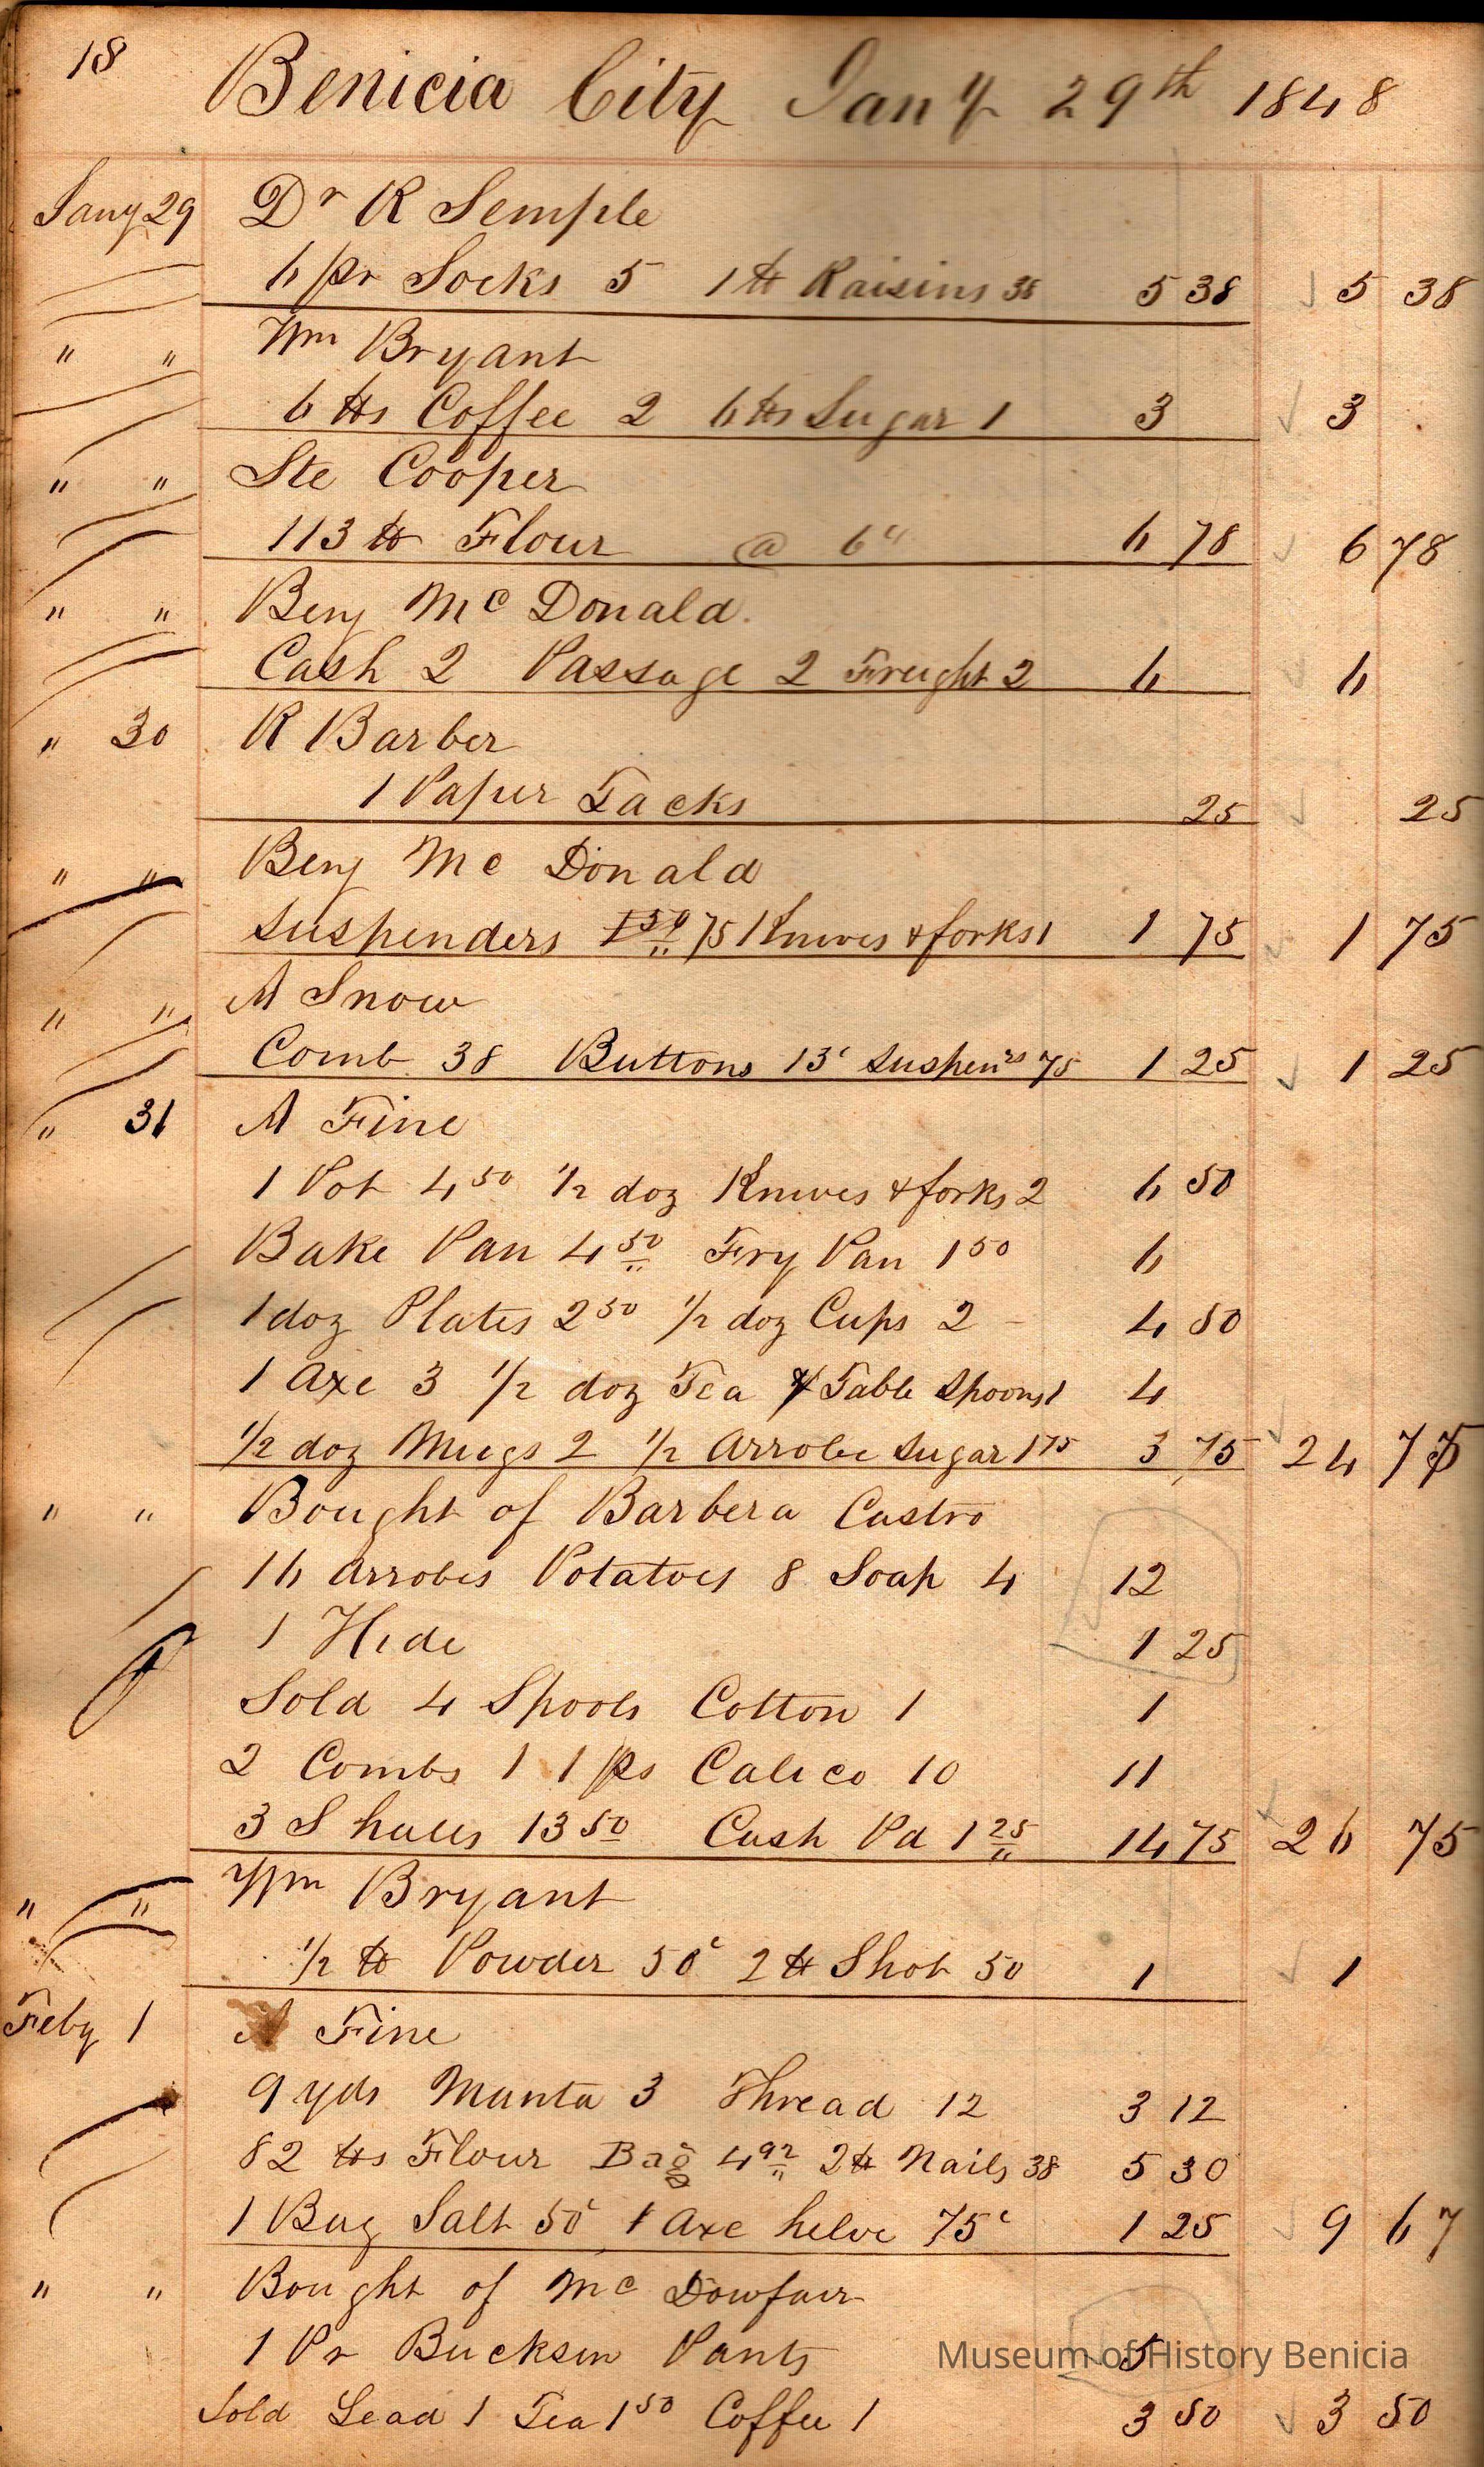 18 Benicia City Jany 29th 1848
Jany 29 Dr R Semple
6 pr Socks 5 1 ℔ Raisins 38 5 38 5 38
" " Wm Bryant
6 ℔s Coffee 2 6 ℔s Sugar 1 3 3
" " Ste Cooper
113 ℔ Flour @ 6c 6 78 6 78
" " Benj McDonald.
Cash 2 Passage 2 Freight 2 6 6
" 30 R Barber
1 Paper Tacks 25 25
" " Benj McDonald
Suspenders 1 50 75 1 Knives & forks 1 1 75 1 75
" " A Snow
Comb 38 Buttons 13c Suspenrs 75 1 25 1 25
" 31 A Fine
1 Pot 4 50 1/2 doz Knives & forks 2 6 50
Bake Pan 4 50 Fry Pan 1 50 6
1 doz Plates 2 50 1/2 doz Cups 2 4 50
1 Axe 3 1/2 doz Tea & Table Spoons 1 4
1/2 doz Mugs 2 1/2 Arrobe Sugar 1 75 3 75 24 75
" " Bought of Barbera Castro
16 Arrobes Potatoes 8 Soap 4 12
1 Hide 1 25
Sold 4 Spools Cotton 1 1
2 Combs 1 1 ps Calico 10 11
3 Shalls 13 50 Cash Pd 1 25 14 75 26 75
" " Wm Bryant
1/2 ℔ Powder 50c 2 ℔ Shot 50 1 1
Feby 1 A Fine
9 yds Manta 3 Thread 12 3 12
82 ℔s Flour Bag 4 92 2 ℔ Nails 38 5 30
1 Bag Salt 50c 1 Axe helve 75c 1 25 9 67
" " Bought of Mc
1 Pr Bucksin Pants 5
Sold Lead 1 Tea 1 50 Coffee 1 3 50 3 50
Museum of History Benicia